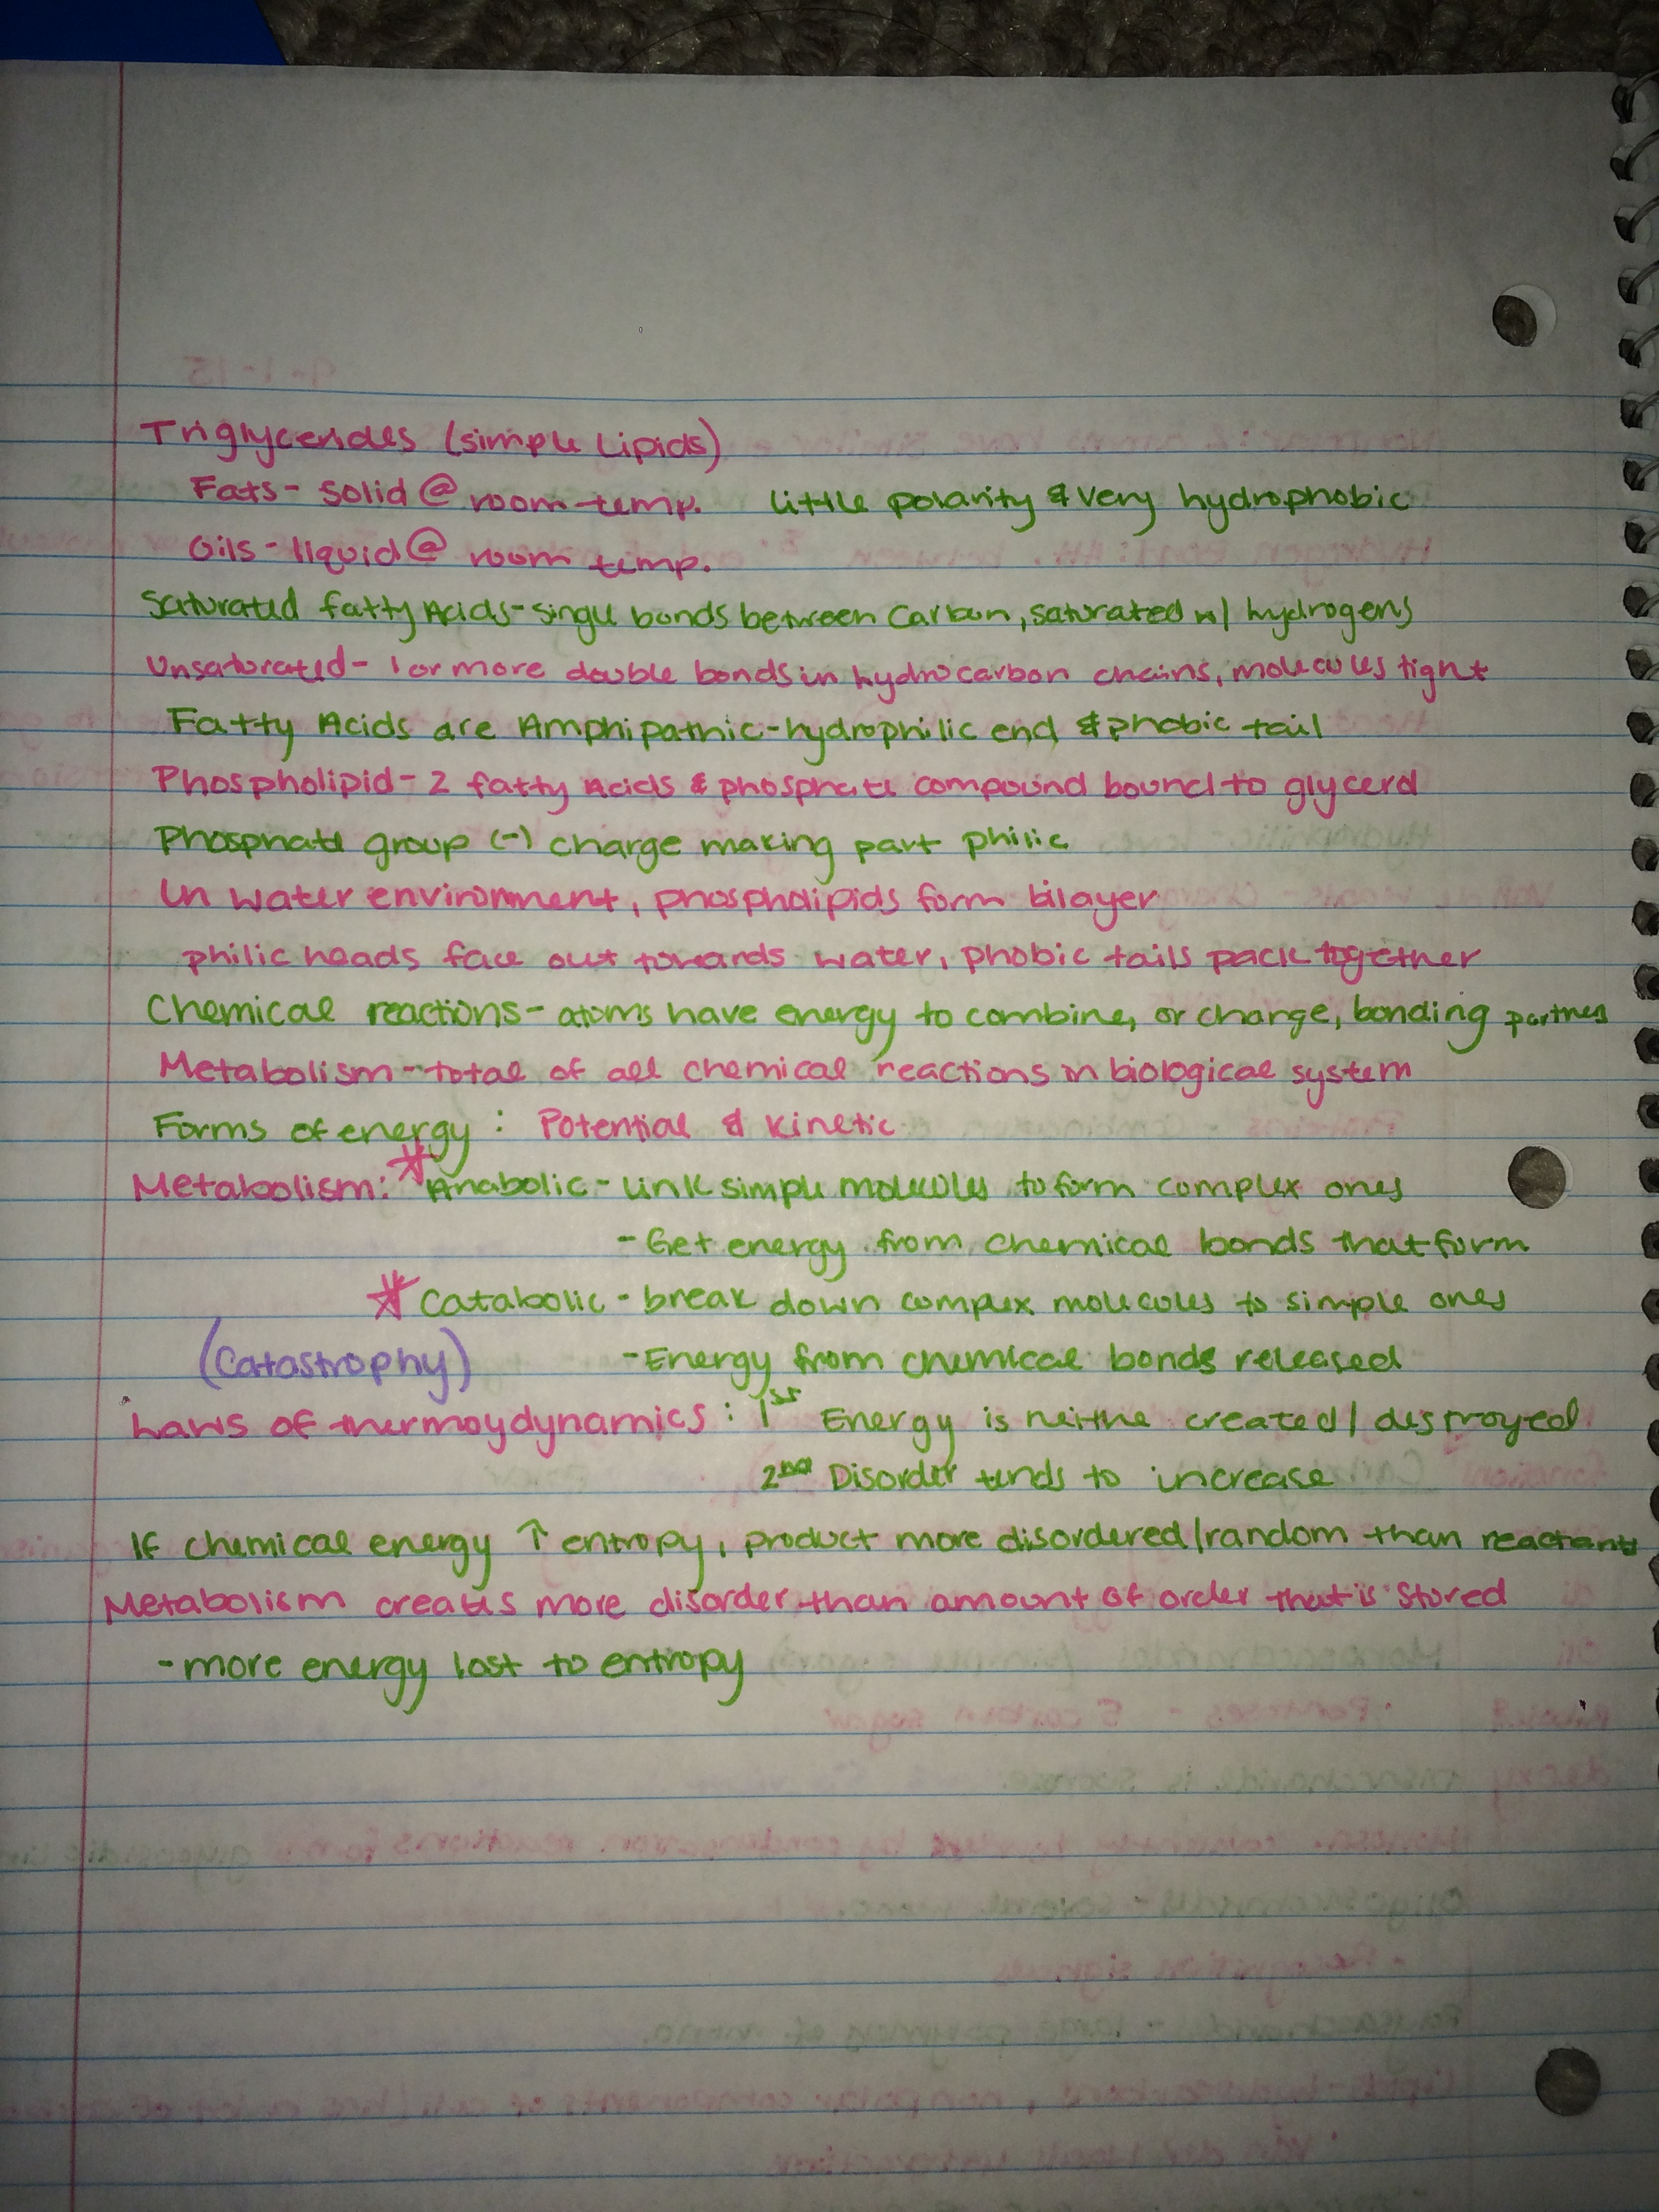 Triglycerides (simple Lipids)
Fats - solid @ room temp. little polarity & very hydrophobic
Oils - liquid @ room temp.
Saturated fatty Acids - single bonds between Carbon, saturated w/ hydrogens
Unsaturated - 1 or more double bonds in hydrocarbon chains, molecules tight
Fatty Acids are Amphipathic - hydrophilic end & phobic tail
Phospholipid - 2 fatty Acids & phosphate compound bound to glycerol
Phosphate group (-) charge making part philic
In water environment, phospholipids form bilayer
philic heads face out towards water, phobic tails pack together
Chemical reactions - atoms have energy to combine, or change, bonding partners
Metabolism - total of all chemical reactions in biological system
Forms of energy : Potential & Kinetic
Metabolism: * Anabolic - link simple molecules to form complex ones
- Get energy from chemical bonds that form
* Catabolic - break down complex molecules to simple ones
(Catastrophy) - Energy from chemical bonds released
Laws of thermoydynamics : 1st Energy is neithe created / destroyed
2nd Disorder tends to increase
If chemical energy ↑ entropy, product more disordered/random than reactants
Metabolism creates more disorder than amount of order that is stored
- more energy lost to entropy